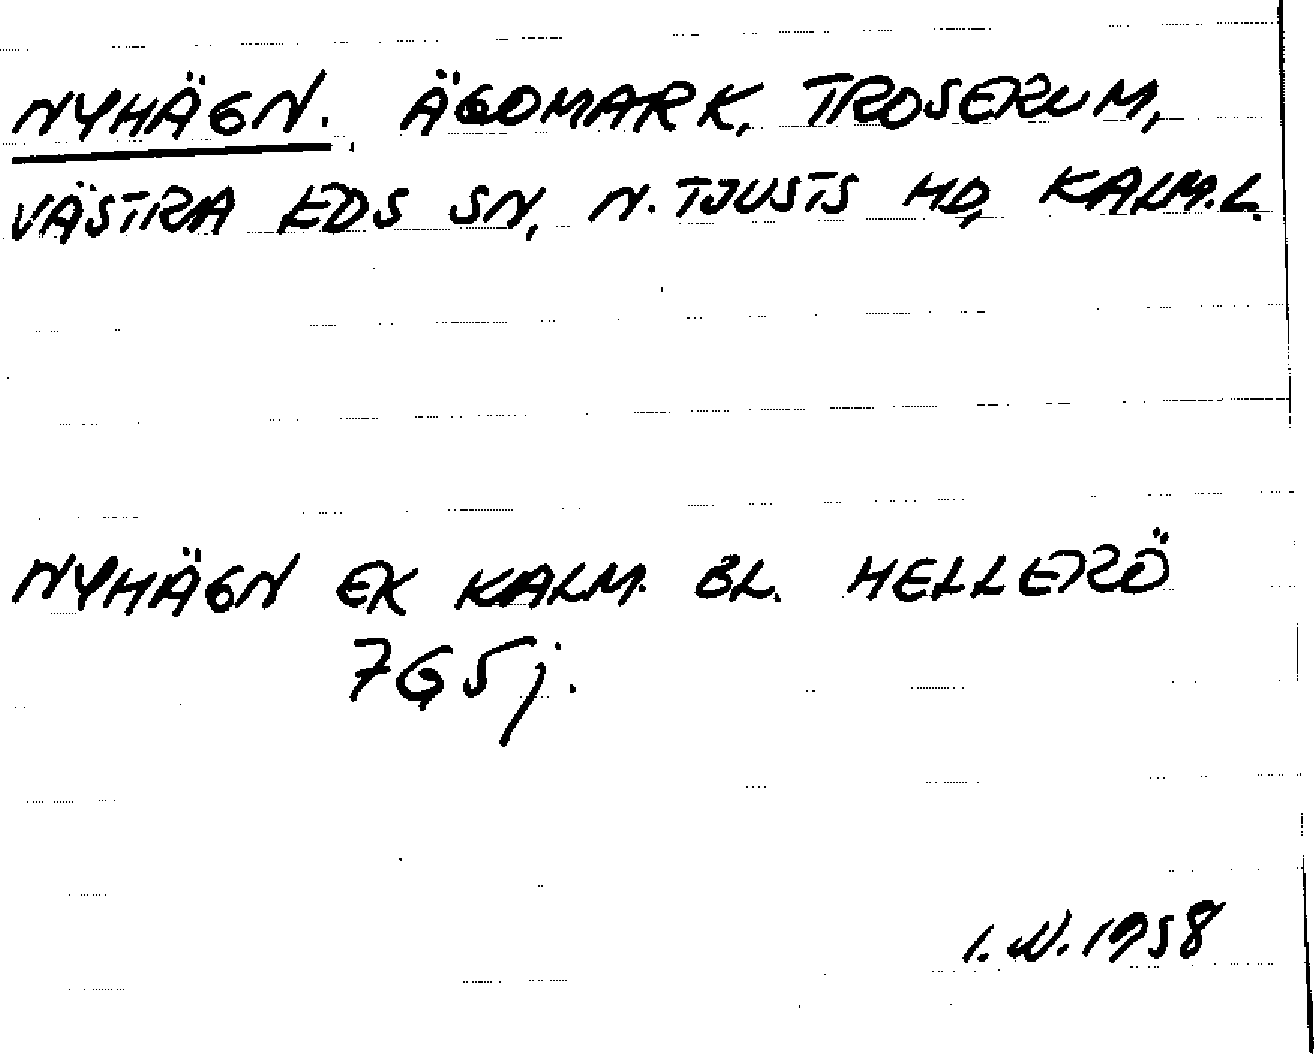 NYHÄGN. ÄGOMARK, TROSERUM,
VÄSTRA EDS SN, N. TJUSTS HD, KALM.L.
NYHÄGN EK KALM. BL. HELLERÖ
7G5j.
I.N.1958